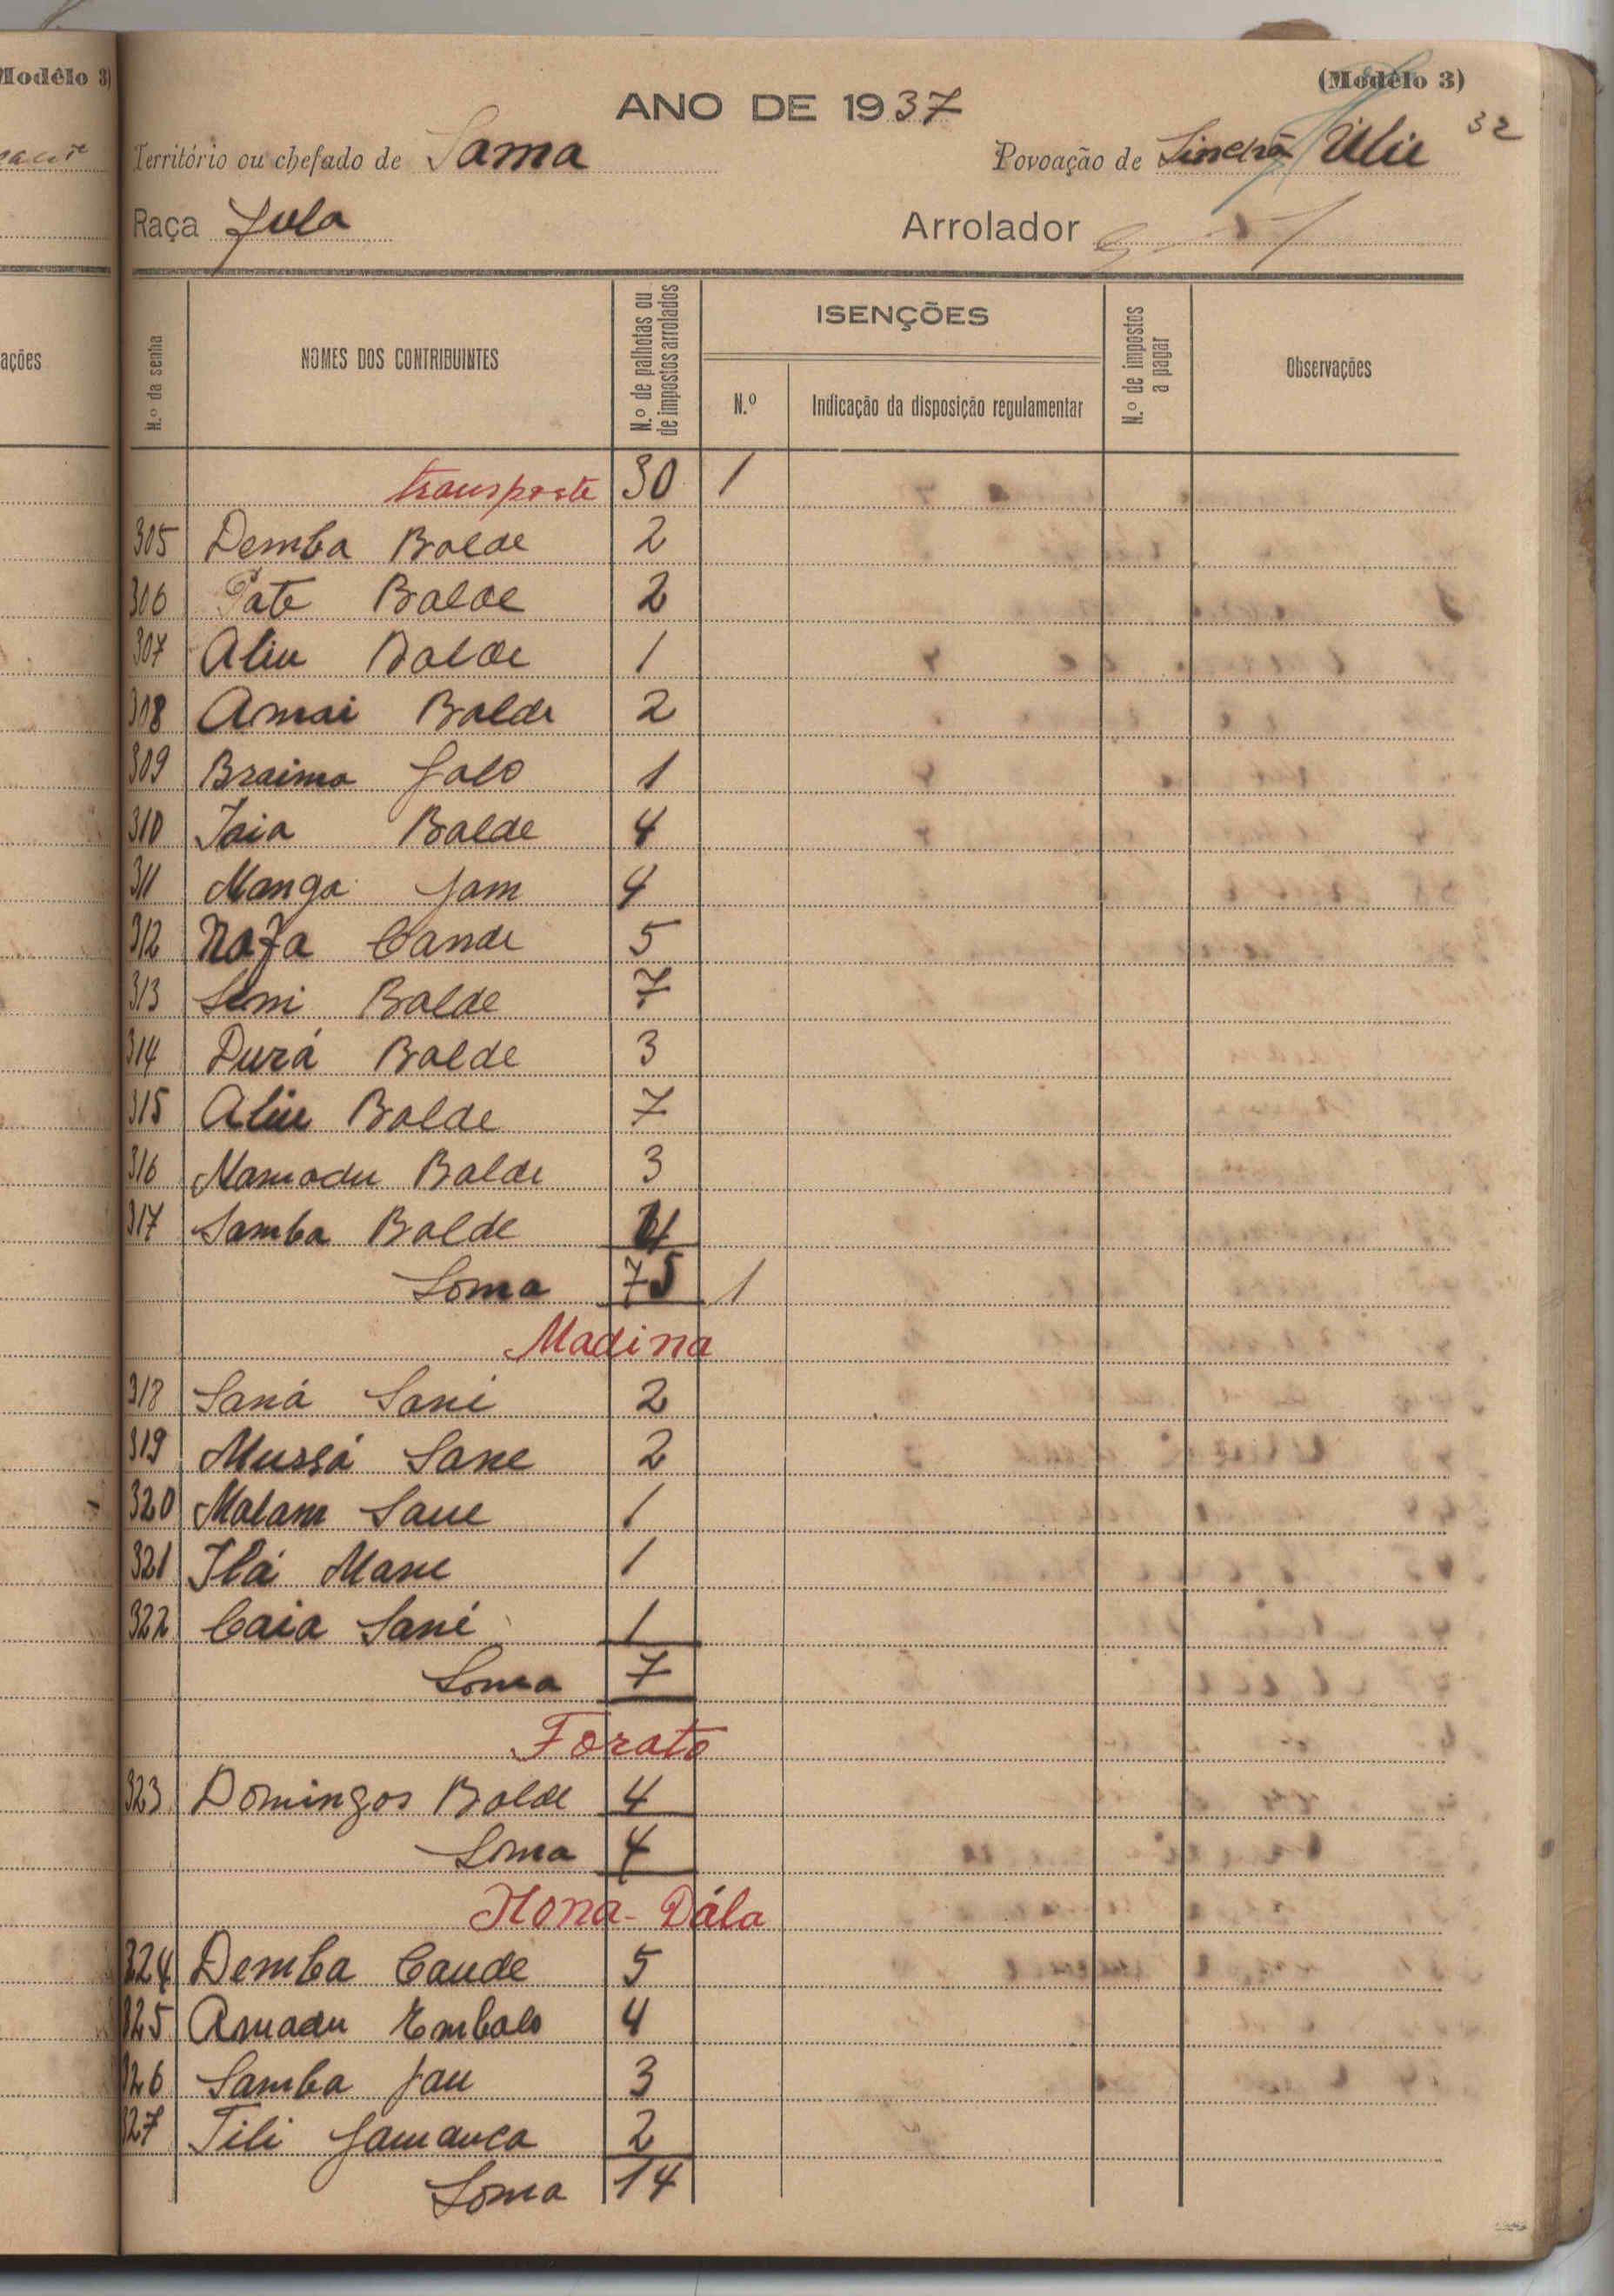 (Modêlo 3)
ANO DE 1937
32
Território ou chefado de Sama Povoação de Sinchã Uliu
Raça Fula Arrolador
N.º da senha NOMES DOS CONTRIBUINTES N.º de palhotas ou de impostos arrolados ISENÇÕES N.º de impostos a pagar Observações
N.º Indicação da disposição regulamentar
transporte 30 1
305 Demba Balde 2
306 Pate Balde 2
307 Aliu Balde 1
308 Amai Balde 2
309 Braima Jalo 1
310 Iaia Balde 4
311 Manga Jam 4
312 Nafa Cande 5
313 Balde 7
314 Durá Balde 3
315 Aliu Balde 7
316 Mamadu Balde 3
317 Samba Balde 4
Soma 75 1
Madina
318 Saná Sané 2
319 Mussá Sane 2
320 Malam Sane 1
321 Mane 1
322 Caia Sané 1
Soma 7
Forato
323 Domingos Balde 4
Soma 4
Hona-Dála
324 Demba Cande 5
325 Amadu Embalo 4
326 Samba Jau 3
327 Tili Jamanca 2
Soma 14
Modêlo 3)
ações